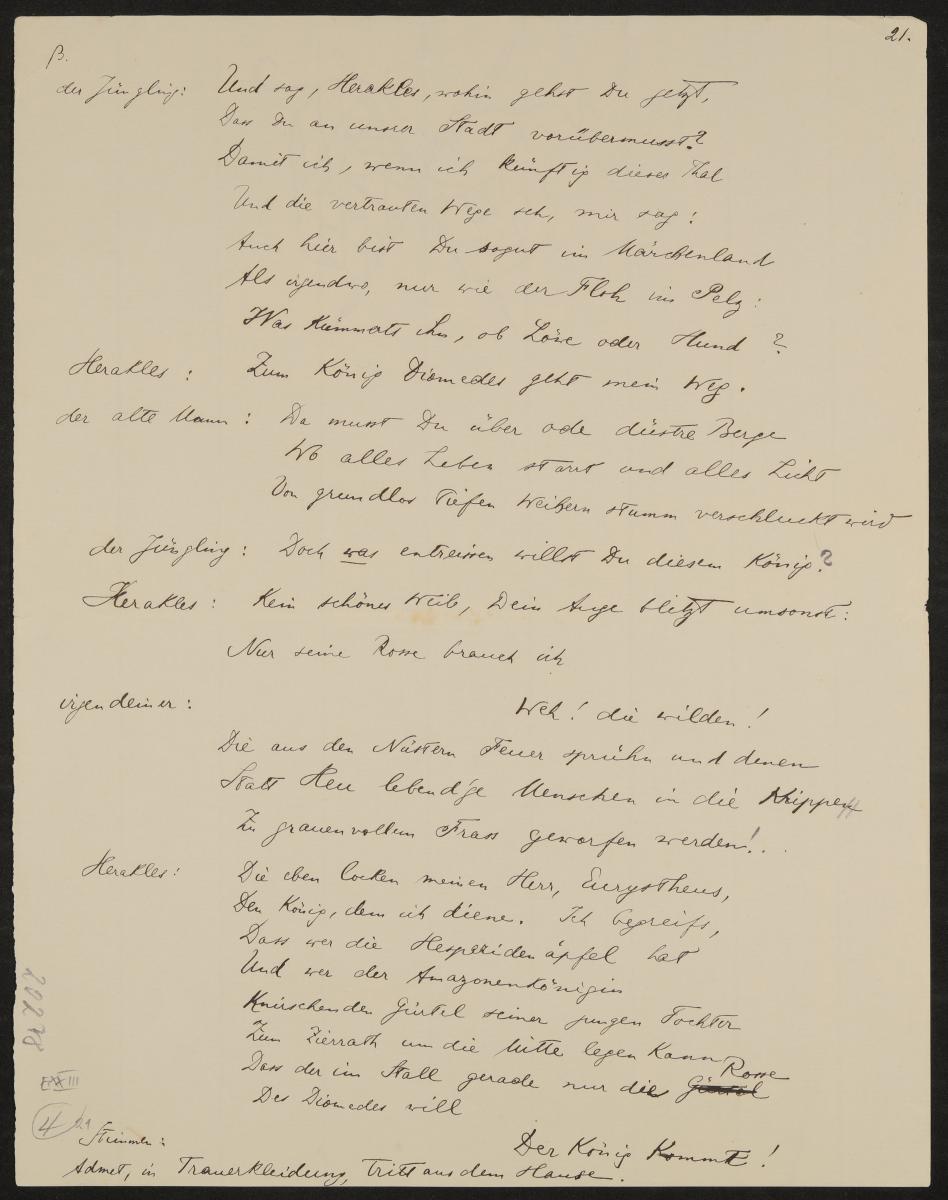 21.
β.
der Jüngling: Und sag, Herakles, wohin gehst Du jetzt,
Dass Du an unsrer Stadt vorübermusst?
Damit ich, wenn ich künftig dieses Thal
Und die vertrauten Wege seh, mir sag:
Auch hier bist Du sogut im Märchenland
Als irgendwo, nur wie der Floh im Pelz:
Was kümmerts ihn, ob Löwe oder Hund?
Herakles: Zum König Diomedes geht mein Weg.
der alte Mann: Da musst Du über öde düstre Berge
Wo alles Leben starrt und alles Licht
Von grundlos tiefen Weihern stumm verschluckt wird
der Jüngling: Doch was entreissen willst Du diesem König?
Herakles: Kein schönes Weib, Dein Auge blitzt umsonst:
Nur seine Rosse brauch ich
irgendeiner: Weh! die wilden!
Die aus den Nüstern Feuer sprühn und denen
Statt Heu lebend'ge Menschen in die Krippen
Zu grauenvollem Frass geworfen werden!..
Herakles: Die eben locken meinen Herr, Eurystheus,
Den König, dem ich diene. Ich begreifs,
Dass wer die Hesperidenäpfel hat
Und wer der Amazonenkönigin
Knirschenden Gürtel seiner jungen Tochter
Zum Zierrath um die Mitte legen kann
Dass der im Stall gerade nur die Gürtel Rosse
Des Diomedes will
Stimmen: Der König kommt!
Admet, in Trauerkleidung, tritt aus dem Hause.
202 78
EXXIII
4 21